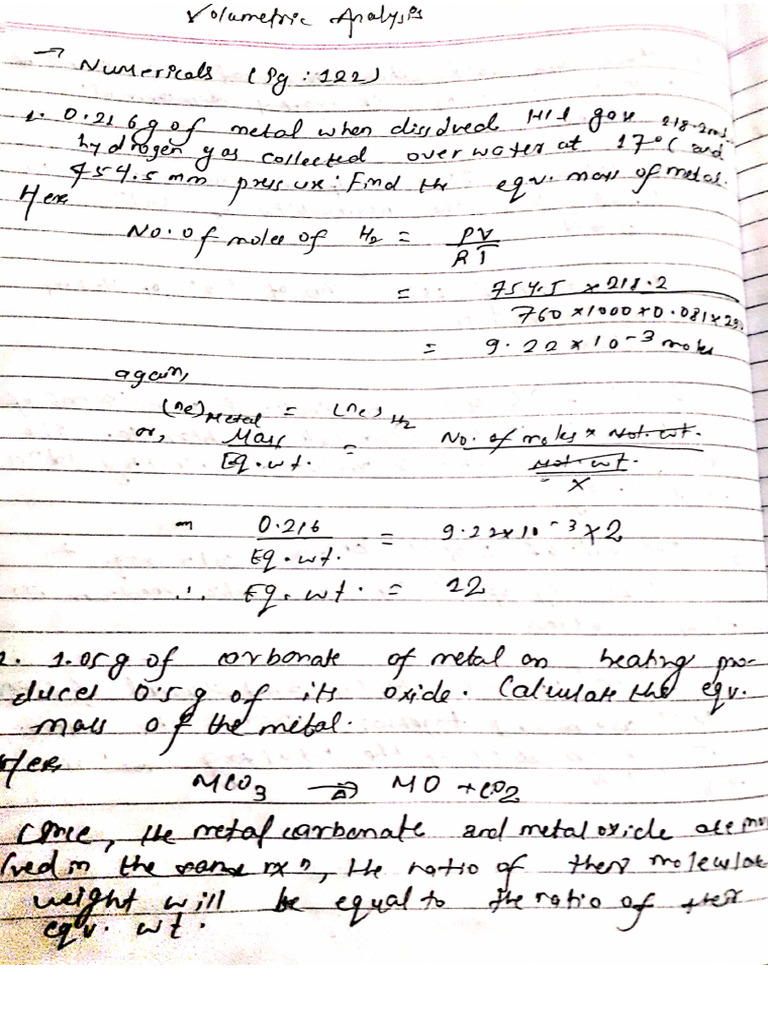 Volumetric Analysis
→ Numericals (Pg: 122)
1. 0.216g of metal when dissolved HCl gave 218.2ml
hydrogen gas collected over water at 17°C and
754.5 mm pressure: Find the eqv. mass of metal.
Here
No. of moles of H2 = PV
RT
= 754.5 × 218.2
760 × 1000 × 0.081 × 29
= 9.22 × 10-3 moles
again,
(ne)Metal = (ne)H2
or, Mass = No. of moles × Mol. wt.
Eq. wt. Mol. wt.
x
0.216 = 9.22 × 10-3 × 2
Eq. wt.
∴ Eq. wt. = 12
2. 1.05g of carbonate of metal on heating pro-
duces 0.5 g of its oxide. Calculate the eqv.
mass of the metal.
Here
MCO3 →Δ MO + CO2
Since, the metal carbonate and metal oxide are
lved in the same rxn, the ratio of their molecular
weight will be equal to the ratio of their
eqv. wt.